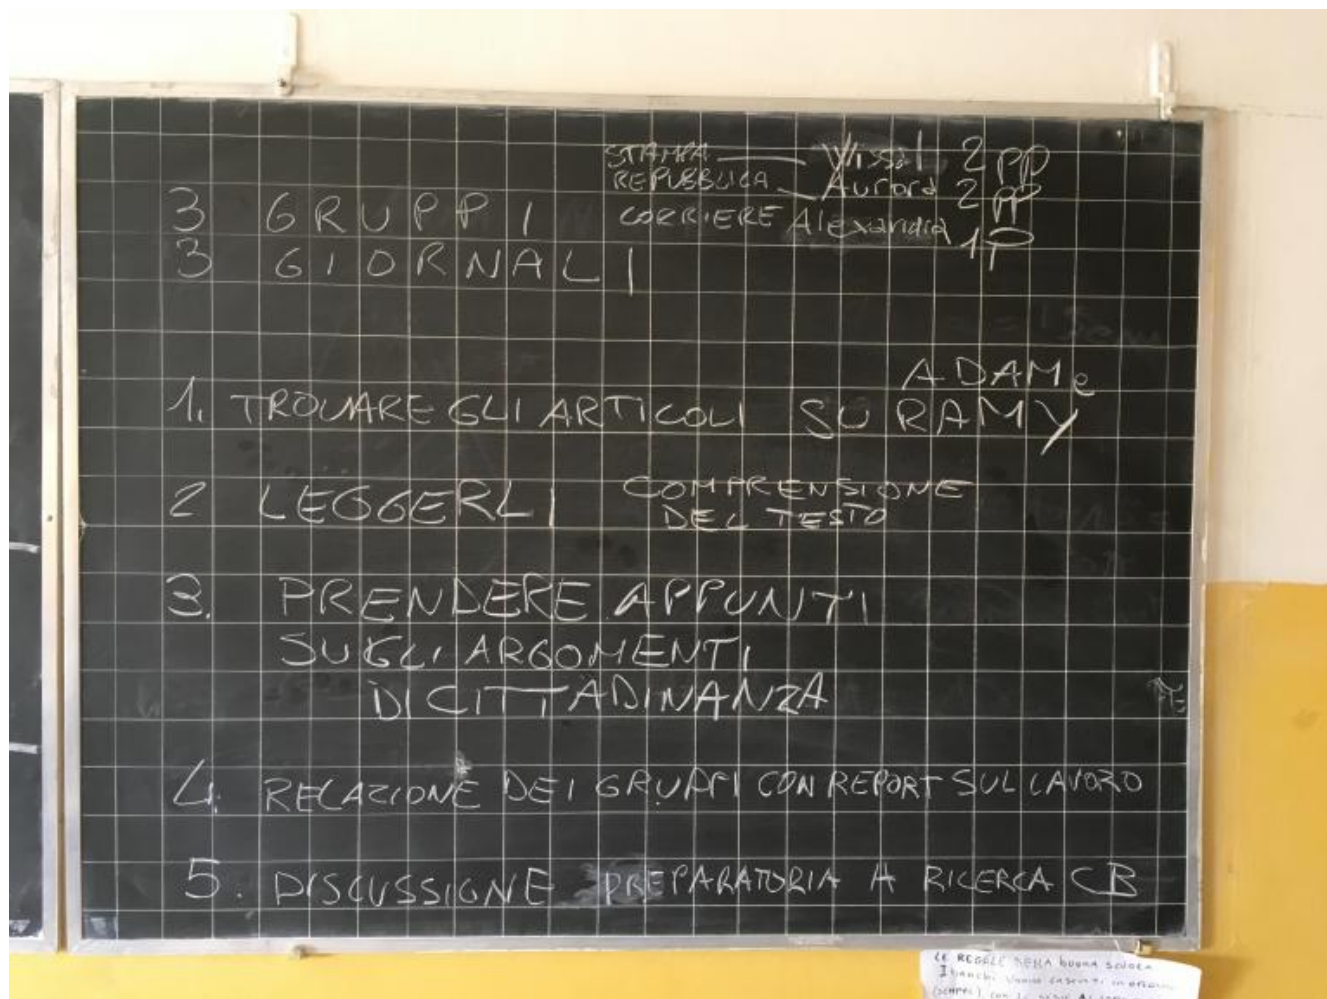 STAMPA Wissal 2 pp
REPUBBLICA Aurora 2 pp
CORRIERE Alexandra 1 P
3 GRUPPI
3 GIORNALI
ADAM e
1. TROVARE GLI ARTICOLI SU RAMY
2 LEGGERLI COMPRENSIONE
DEL TESTO
3. PRENDERE APPUNTI
SUGLI ARGOMENTI
DI CITTADINANZA
4. RELAZIONE DEI GRUPPI CON REPORT SUL LAVORO
5. DISCUSSIONE PREPARATORIA A RICERCA CB
LE REGOLE DELLA buona scuola
I banchi vanno